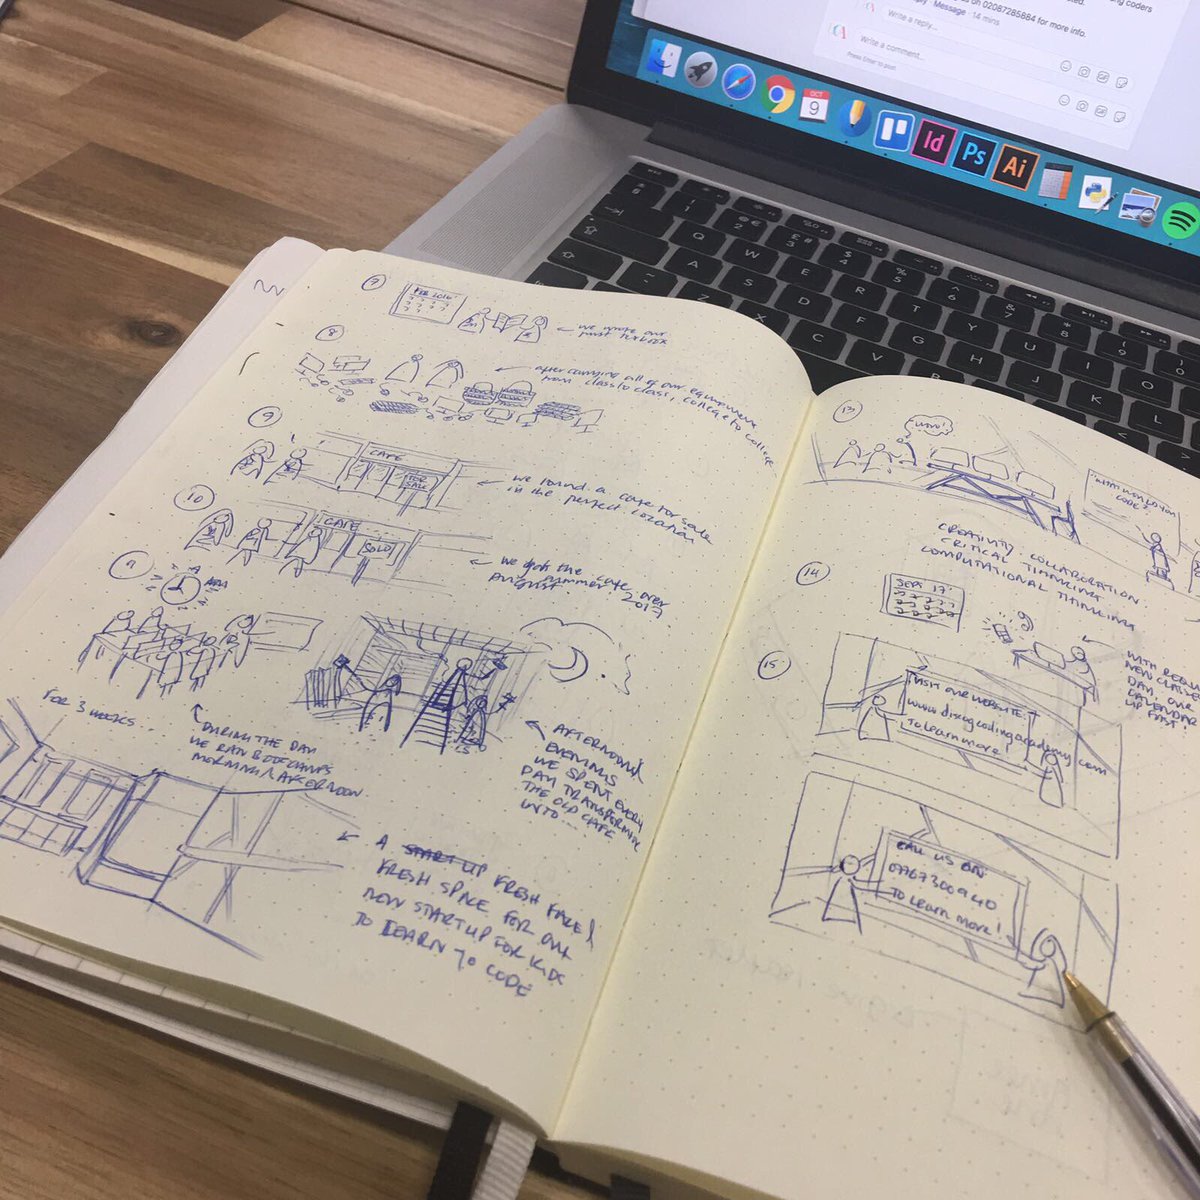 ing coders
us on 02087285884 for more info.
Reply · Message · 14 mins
Write a reply...
Write a comment...
Press Enter to post.
OCT
9
Id
Ps
Ai
7
FEB 2016
← we wrote our
first
8
← after carrying all of our equipment
from class to class, college to college
9
CAFE
FOR
SALE
← we found a cafe for sale
in the perfect location
10
CAFE
SOLD
← we got the cafe over
summer
August 2017
11
FOR 3 WEEKS...
DURING THE DAY
WE RAN BOOTCAMPS
MORNING \ AFTERNOON
AFTERNOON \
EVENINGS
WE SPENT EVERY
DAY TRANSFORMING
THE OLD CAFE
INTO...
A START UP FRESH FACED
FRESH SPACE FOR OUR
NEW STARTUP FOR KIDS
TO LEARN TO CODE
13
"WHAT WOULD YOU
CODE?"
CREATIVITY COLLABORATION
CRITICAL THINKING
COMPUTATIONAL THINKING
14
SEPT 17'
WITH
NEW CLASSES
DAY, OUR
CALENDAR
UP FAST!
15
VISIT OUR WEBSITE
TO learn more!
CALL US ON:
0767300940
TO learn more!